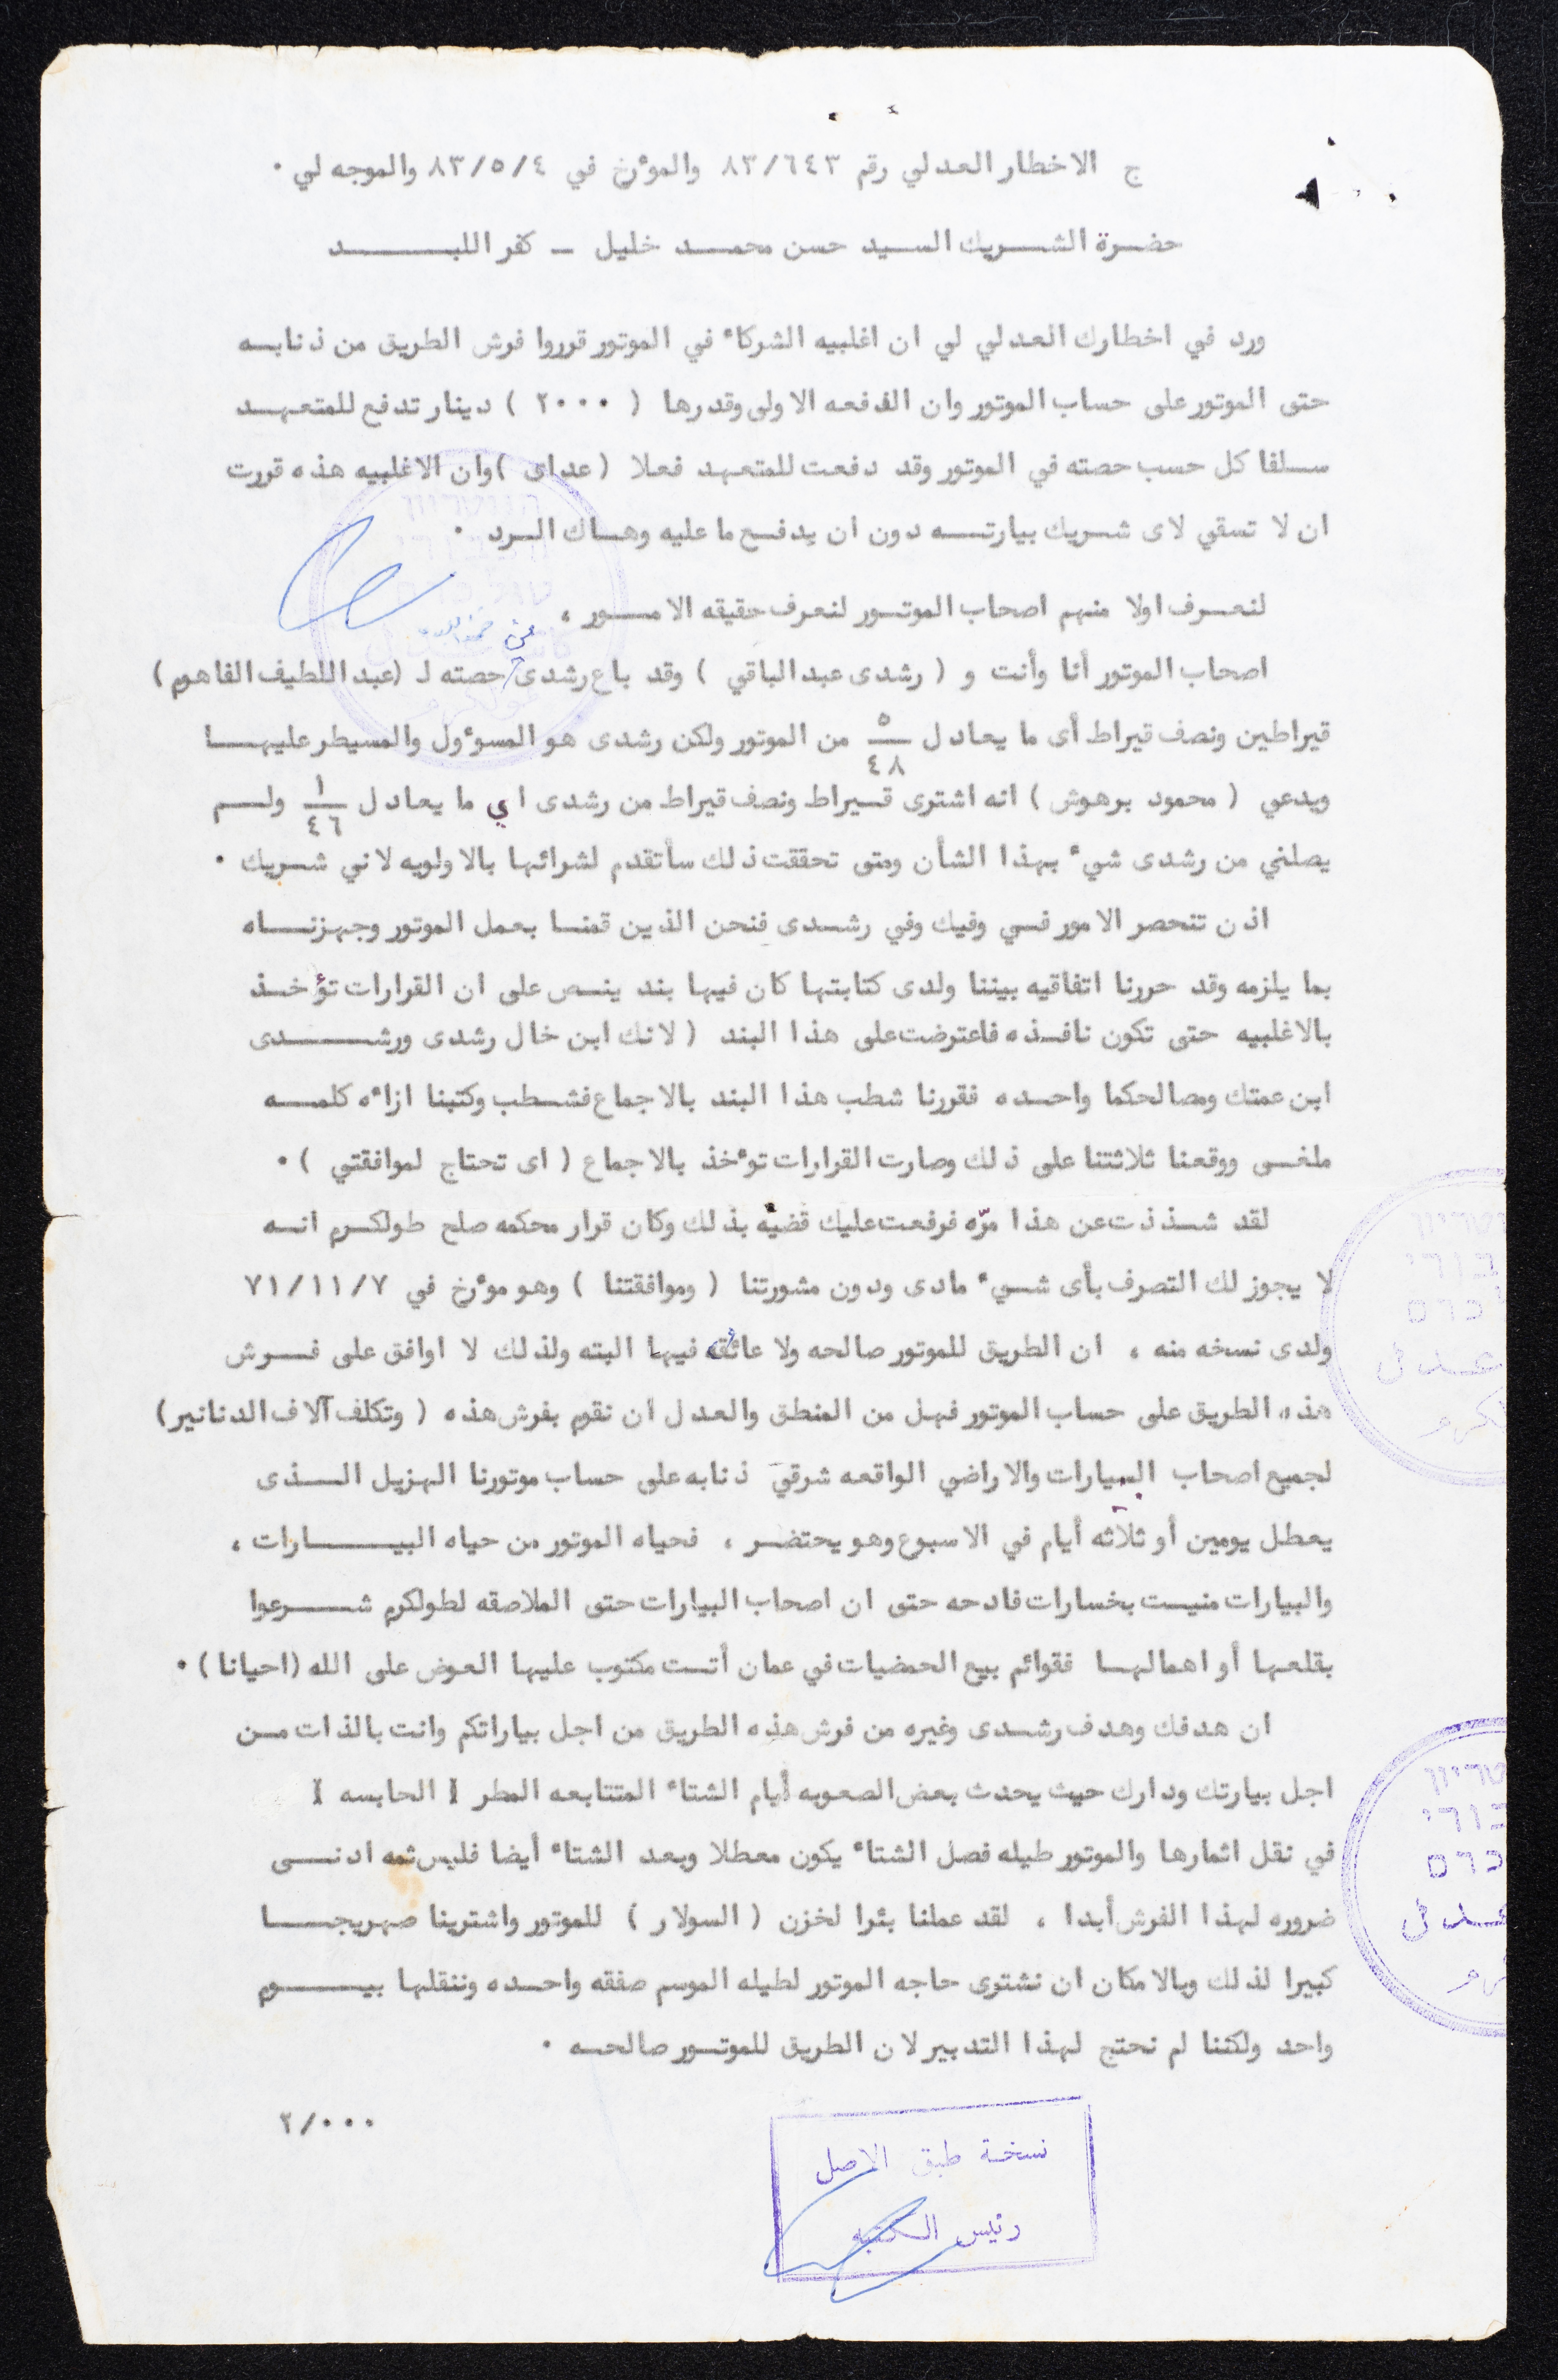 ج الاخطار العدلي رقم ٨٣/٦٤٣ والموٴرخ في ٨٣/٥/٤ والموجه لي ٠
حضرة الشريك السيد حسن محمد خليل ــ كفر اللبد
ورد في اخطارك العدلي لي ان اغلبيه الشركاء في الموتور قرروا فرش الطريق من ذنابه
حتى الموتور على حساب الموتور وان الدفعه الاولى وقدرها ( ٢٠٠٠ ) دينار تدفع للمتعهد
سلفا كل حسب حصته في الموتور وقد دفعت للمتعهد فعلا ( عداى ) وان الاغلبيه هذه قررت
ان لا تسقي لاى شريك بيارته دون ان يدفع ما عليه وهاك الرد ٠
لنعرف اولا منهم اصحاب الموتور لنعرف حقيقه الامور ،
من
اصحاب الموتور أنا وأنت و ( رشدى عبد الباقي ) وقد باع رشدى حصته لـ (عبد اللطيف الفاهوم)
قيراطين ونصف قيراط أى ما يعادل ٥/٤٨ من الموتور ولكن رشدى هو المسوٴول والمسيطر عليها
ويدعي ( محمود برهوش ) انه اشترى قيراط ونصف قيراط من رشدى اي ما يعادل ١/٤٦ ولم
يصلني من رشدى شيء بهذا الشأن ومتى تحققت ذلك سأتقدم لشرائها بالاولويه لاني شريك ٠
اذن تنحصر الامور في وفيك وفي رشدى فنحن الذين قمنا بعمل الموتور وجهزناه
بما يلزمه وقد حررنا اتفاقيه بيننا ولدى كتابتها كان فيها بند ينص على ان القرارات توٴخذ
بالاغلبيه حتى تكون نافذه فاعترضت على هذا البند ( لانك ابن خال رشدى ورشدى
ابن عمتك ومصالحكما واحده فقررنا شطب هذا البند بالاجماع فشطب وكتبنا ازاءه كلمه
ملغى ووقعنا ثلاثتنا على ذلك وصارت القرارات توٴخذ بالاجماع ( اى تحتاج لموافقتي ) ٠
لقد شذذت عن هذا مرّه فرفعت عليك قضيه بذلك وكان قرار محكمه صلح طولكرم انه
لا يجوز لك التصرف بأى شيء مادى ودون مشورتنا ( وموافقتنا ) وهو موٴرخ في ٧١/١١/٧
ولدى نسخه منه ، ان الطريق للموتور صالحه ولا عائق فيها البته ولذلك لا اوافق على فرش
هذه الطريق على حساب الموتور فهل من المنطق والعدل ان نقوم بفرش هذه ( وتكلف آلاف الدنانير)
لجميع اصحاب البيارات والاراضي الواقعه شرقي ذنابه على حساب موتورنا الهزيل الذى
يعطل يومين أو ثلاثه أيام في الاسبوع وهو يحتضر ، فحياه الموتور من حياه البيارات ،
والبيارات منيت بخسارات فادحه حتى ان اصحاب البيارات حتى الملاصقه لطولكرم شرعوا
بقلعها أو اهمالها فقوائم بيع الحمضيات في عمان أتت مكتوب عليها العوض على الله (احيانا) ٠
ان هدفك وهدف رشدى وغيره من فرش هذه الطريق من اجل بياراتكم وانت بالذات من
اجل بيارتك ودارك حيث يحدث بعض الصعوبه أيام الشتاء المتتابعه المطر ( الحابسه )
في نقل اثمارها والموتور طيله فصل الشتاء يكون معطلا وبعد الشتاء أيضا فليس ثمه ادنى
ضروره لهذا الفرش أبدا ، لقد عملنا بئرا لخزن ( السولار ) للموتور واشترينا صهريجا
كبيرا لذلك وبالامكان ان نشترى حاجه الموتور لطيله الموسم صفقه واحده وننقلها بيوم
واحد ولكننا لم نحتج لهذا التدبير لان الطريق للموتور صالحه ٠
٢/٠٠٠
نسخة طبق الاصل
رئيس الكتبه